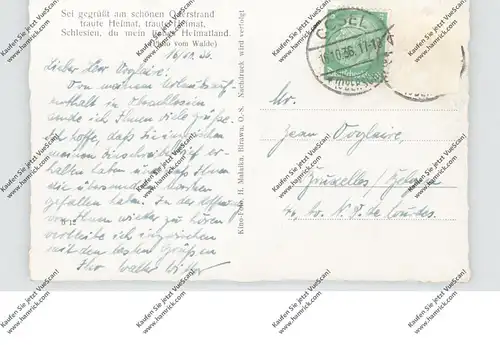 Sei gegrüßt am schönen Oderstrand
traute Heimat, traute Heimat,
Schlesien, du mein liebes Heimatland.
(Philo vom Walde)
16/10.36.
Lieber Herr Voglaire,
Von meinem Urlaubsauf-
enthalt in Oberschlesien
sende ich Ihnen viele Grüße.
Ich hoffe, daß Sie inzwischen
meinen Einschreibebrief er-
halten haben und daß Ihnen
die übersandten Marken
gefallen haben. In der Hoffnung
von Ihnen wieder zu hören
verbleibe ich inzwischen
mit den besten Grüßen
Ihr Walter
K 12
Kino-Foto H. Nachdruck wird verfolgt
COSEL
16.10.36.17-18
Mr.
Jean Voglaire,
Bruxelles / Belgien
Av. N. D. de Lourdes.
Kaufen Sie jetzt VueScan!
www.hamrick.com